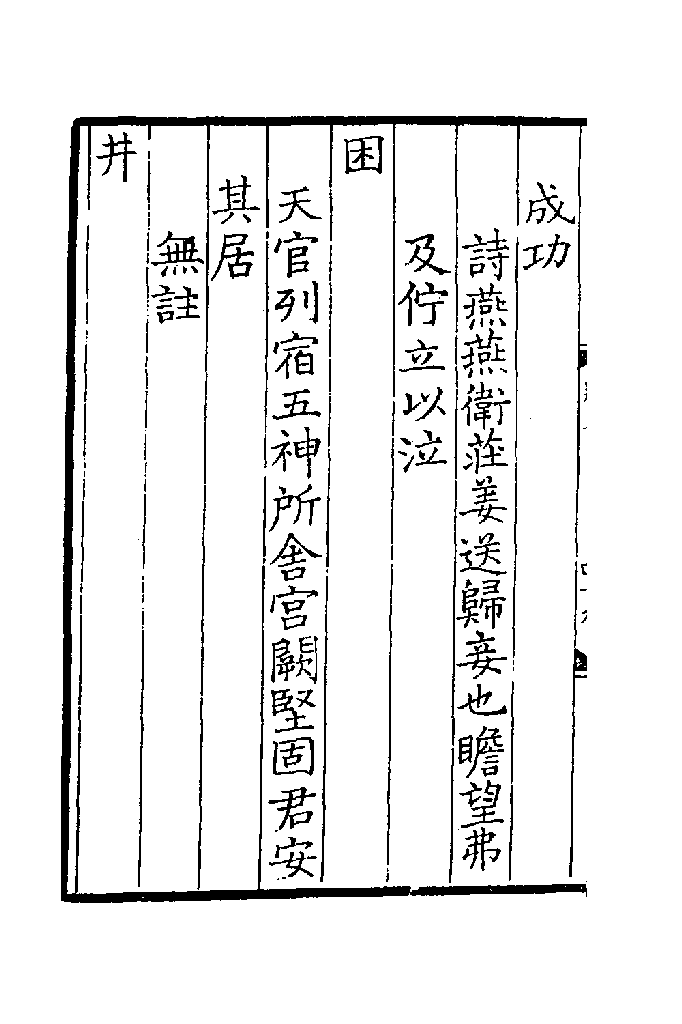 成功
詩燕燕衛莊姜送歸妾也瞻望弗
及佇立以泣
困
天官列宿五神所舎宮闕堅固君安
其居
無註
井